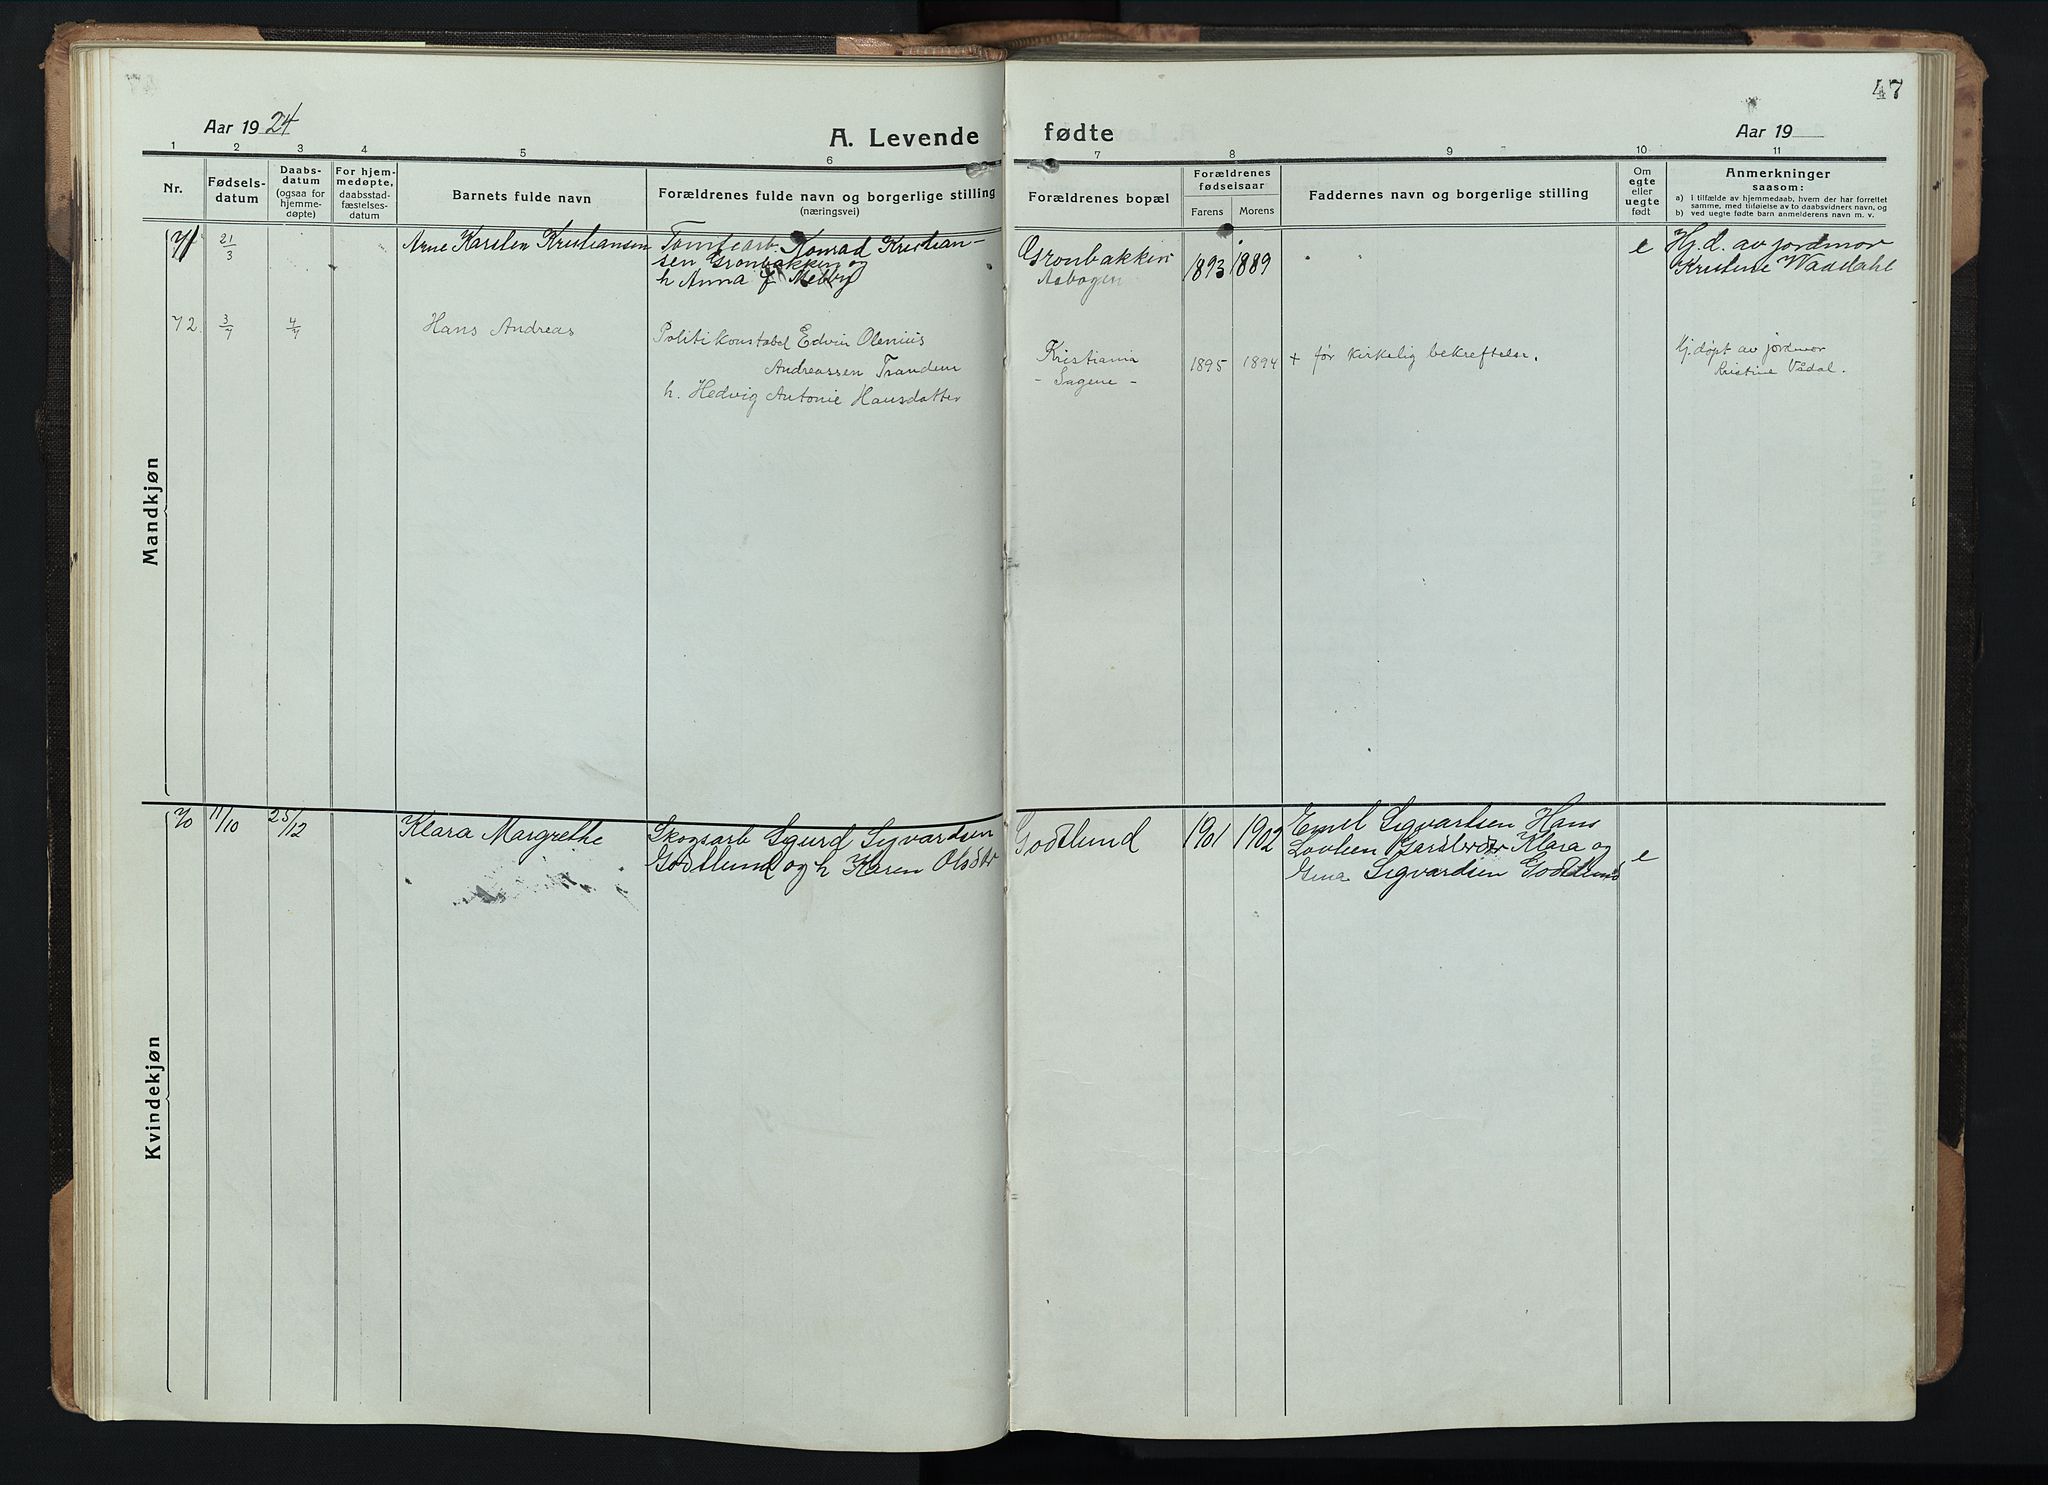 47
Aar 1924
A. Levende fødte
Aar 19
1 2 3 4 5 6 7 8 9 10 11
Nr.
Fødsels-
datum
Daabs-
datum
(ogsaa for
hjemme-
døpte)
For hjem-
medøpte,
daabsstad-
fæstelses-
datum
Barnets fulde navn
Forældrenes fulde navn og borgerlige stilling
(næringsvei)
Forældrenes bopæl
Forældrenes
fødselsaar
Farens Morens
Faddernes navn og borgerlige stilling
Om
egte
eller
uegte
født
Anmerkninger
saasom:
a) i tilfælde av hjemmedaab, hvem der har forrettet
samme, med tilføielse av to daabsvidners navn, og
b) ved uegte fødte barn anmelderens navn m. v.
Mandkjøn
71 21/3 Arne Karsten Kristiansen
Tomtearb. Konrad Kristian-
sen Grønbakken og
h Anna f. Mebby
Grønbakken
Aabogen
1893 1889
e
Hj.d. av jordmor
Kristine Waadahl
72 3/7 4/7 Hans Andreas
Politikonstabel Edvin Olenius
Andreassen Trandem
h. Hedvig Antonie Hansdatter
Kristiania
- Sagene -
1895 1894 + før kirkelig bekreftelse.
Hj.døpt av jordmor
Kristine Vådal.
Kvindekjøn
70 11/10 25/12 Klara Margrethe
Skogsarb Sigurd Sigvardsen
Godtlund og h Karen Olsdtr
Godtlund 1901 1902
Emil Sigvartsen Hans
Lovleen Klara og
Gina Sigvardsen Godtlund
e